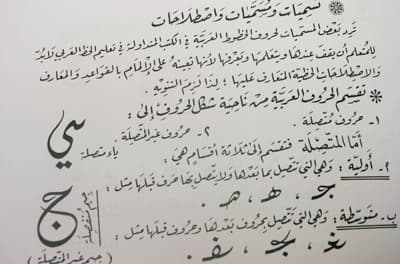 ❋ تسميات ومسميات واصطلاحات
ترد بعض المسميات لحروف الخطوط العربية في الكتب المتداولة في تعليم الخط العربي لابد
للمتعلم أن يقف عندها ويتعلمها ويعرفها لأنها تعينه على الإلمام بالقواعد والمعارف
والاصطلاحات الخطية المتعارف عليها؛ لذا لزم التنويه.
❋ تقسم الحروف العربية من ناحية شكل الحروف إلى:
١- حروف متصلة.
٢- حروف غير المتصلة
ي
ياء متصلة
أما المتصلة فتقسم إلى ثلاثة أقسام هي:
أ- أولية: وهي التي تتصل بما بعدها ولا يتصل بها حرف قبلها مثل:
جـ، هـ، هـ.
ج
جيم منفصلة
(جيم غير المتصلة)
ب- متوسطة: وهي التي تتصل بحروف بعدها وحروف قبلها مثل:
ـغـ، ـجـ، ـفـ.